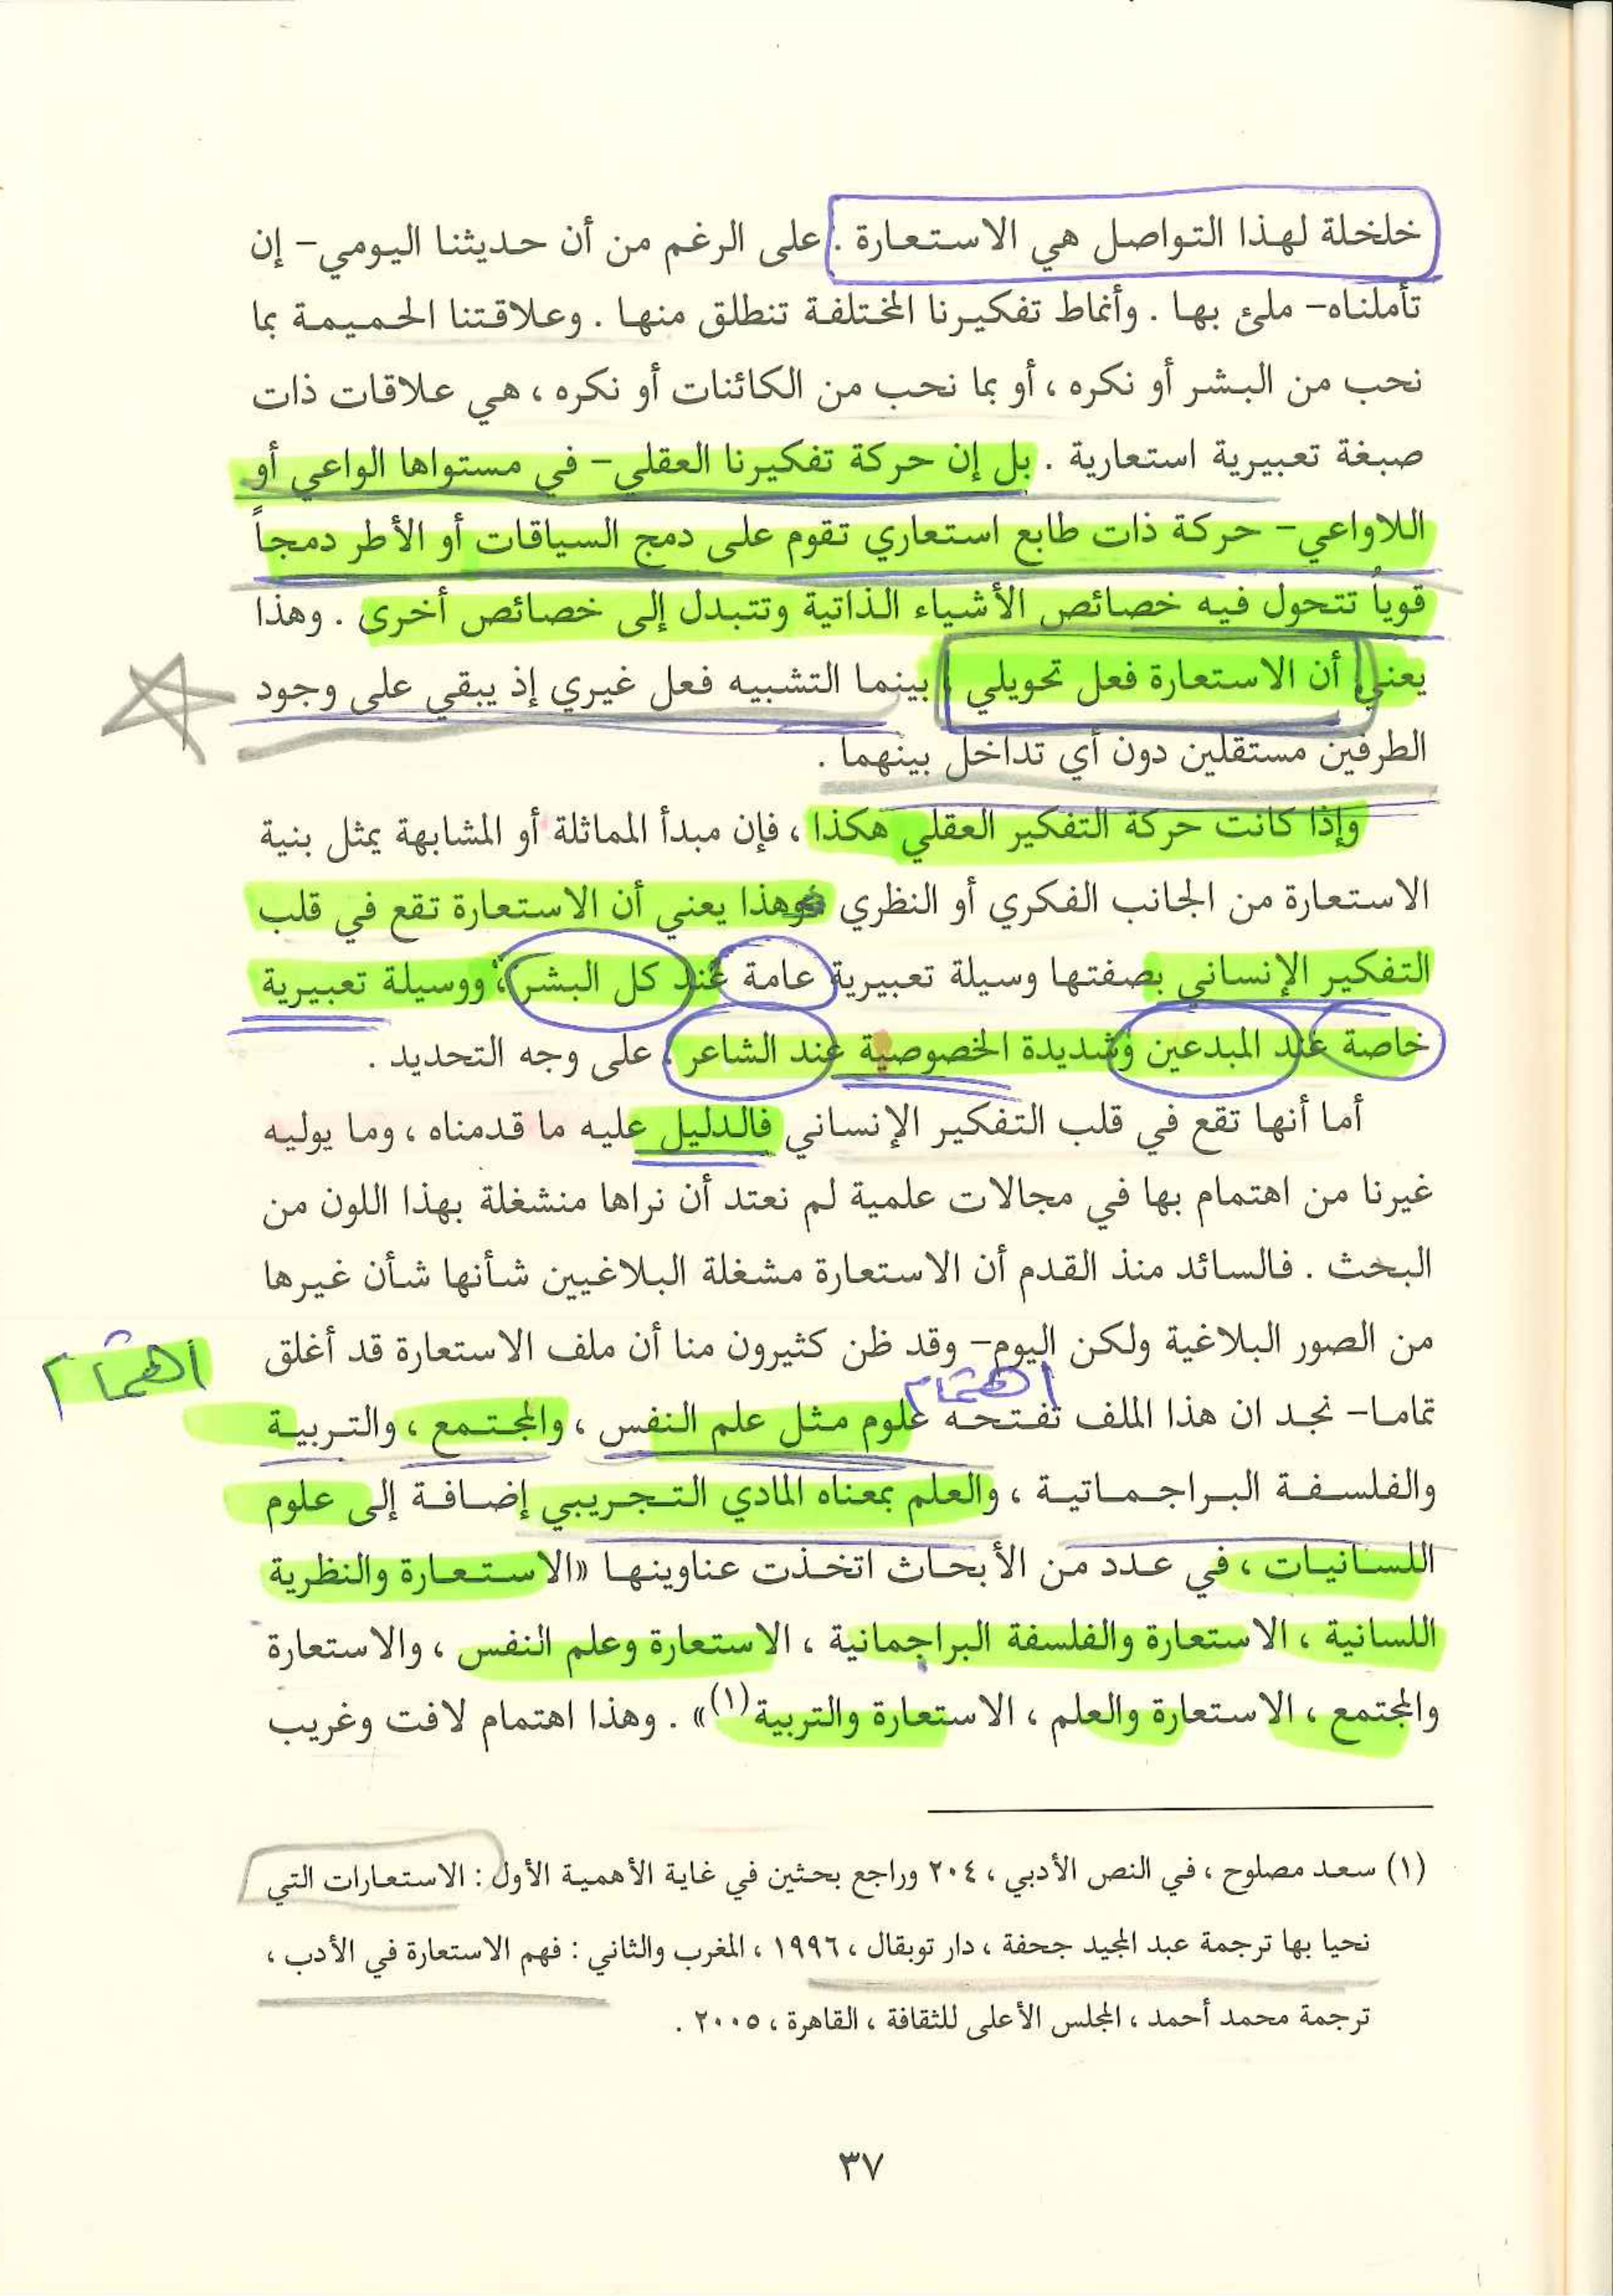 خلخلة لهذا التواصل هي الاستعارة . على الرغم من أن حديثنا اليومي- إن
تأملناه- ملئ بها . وأنماط تفكيرنا المختلفة تنطلق منها . وعلاقتنا الحميمة بما
نحب من البشر أو نكره ، أو بما نحب من الكائنات أو نكره ، هي علاقات ذات
صبغة تعبيرية استعارية . بل إن حركة تفكيرنا العقلي- في مستواها الواعي أو
اللاواعي- حركة ذات طابع استعاري تقوم على دمج السياقات أو الأطر دمجاً
قوياً تتحول فيه خصائص الأشياء الذاتية وتتبدل إلى خصائص أخرى . وهذا
يعني أن الاستعارة فعل تحويلي ، بينما التشبيه فعل غيري إذ يبقي على وجود
الطرفين مستقلين دون أي تداخل بينهما .
وإذا كانت حركة التفكير العقلي هكذا ، فإن مبدأ المماثلة أو المشابهة يمثل بنية
الاستعارة من الجانب الفكري أو النظري وهذا يعني أن الاستعارة تقع في قلب
التفكير الإنساني بصفتها وسيلة تعبيرية عامة عند كل البشر ، ووسيلة تعبيرية
خاصة عند المبدعين وشديدة الخصوصية عند الشاعر . على وجه التحديد .
أما أنها تقع في قلب التفكير الإنساني فالدليل عليه ما قدمناه ، وما يوليه
غيرنا من اهتمام بها في مجالات علمية لم نعتد أن نراها منشغلة بهذا اللون من
البحث . فالسائد منذ القدم أن الاستعارة مشغلة البلاغيين شأنها شأن غيرها
من الصور البلاغية ولكن اليوم- وقد ظن كثيرون منا أن ملف الاستعارة قد أغلق
اهتمام
اهتمام
تماما- نجد ان هذا الملف تفتحه علوم مثل علم النفس ، والمجتمع ، والتربية
والفلسفة البراجماتية ، والعلم بمعناه المادي التجريبي إضافة إلى علوم
اللسانيات ، في عدد من الأبحاث اتخذت عناوينها «الاستعارة والنظرية
اللسانية ، الاستعارة والفلسفة البراجمانية ، الاستعارة وعلم النفس ، والاستعارة
والمجتمع ، الاستعارة والعلم ، الاستعارة والتربية(١)» . وهذا اهتمام لافت وغريب
(١) سعد مصلوح ، في النص الأدبي ، ٢٠٤ وراجع بحثين في غاية الأهمية الأول : الاستعارات التي
نحيا بها ترجمة عبد المجيد جحفة ، دار توبقال ، ١٩٩٦ ، المغرب والثاني : فهم الاستعارة في الأدب ،
ترجمة محمد أحمد ، المجلس الأعلى للثقافة ، القاهرة ، ٢٠٠٥ .
٣٧